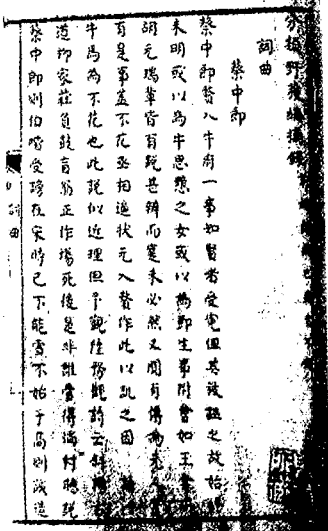 野獲編摘錄
詞曲
蔡中郎
蔡中郎贅入牛府一事如賢者受冤但其被誣之故始
未明或以為牛思黯之女或以為鄧生事附會如王
胡元瑞輩皆有說甚辨而實未必然又聞有傳為元
有是事蓋不花丞相逼狀元入贅作此以譏之因
牛馬為不花也此說似近理但予觀陸務觀詩云斜陽
道柳家莊負鼓盲翁正作場死後是非誰管得滿村聽說
蔡中郎則伯喈受謗在宋時已不能雪不始于高則誠造
詞曲